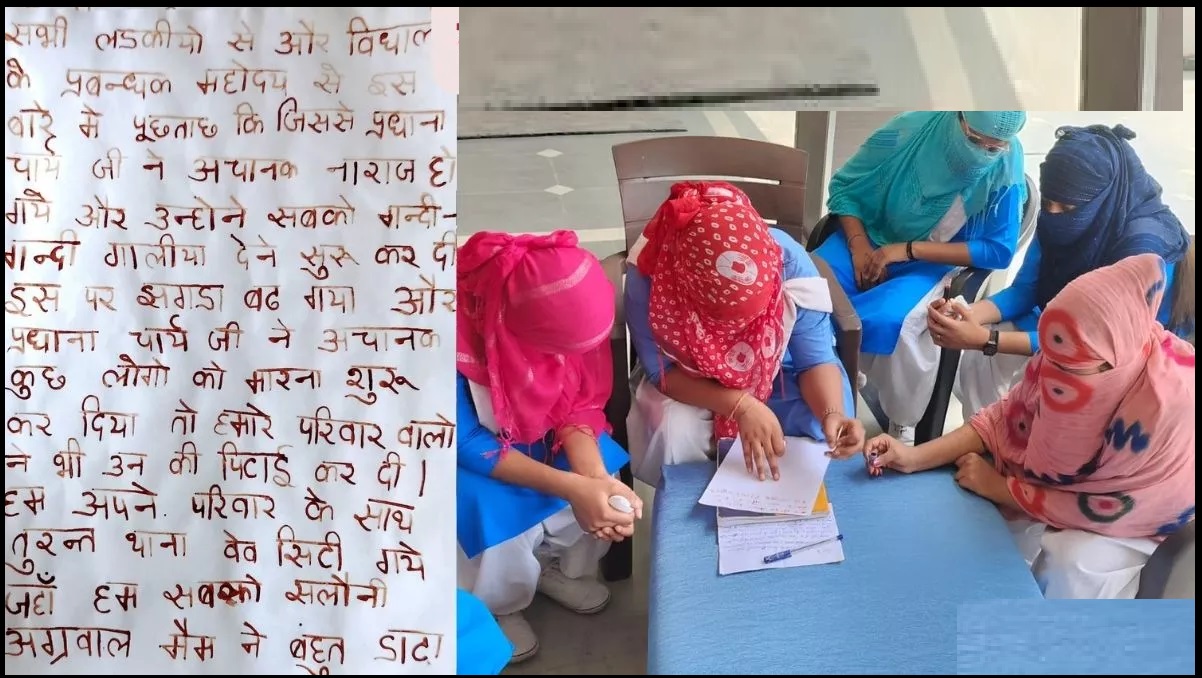 सभी लडकीयो से और विधाल
के प्रबन्धक महोदय से इस
बारे मे पूछताछ कि जिससे प्रधाना
चार्य जी ने अचानक नाराज हो
गये और उन्होने सबको गन्दी-
गन्दी गालीया देने सुरू कर दी
इस पर झगडा बढ गया और
प्रधाना चार्य जी ने अचानक
कुछ लोगो को मारना शुरू
कर दिया तो हमारे परिवार वालो
ने भी उन की पिटाई कर दी।
हम अपने परिवार के साथ
तुरन्त थाना वेव सिटी गये
जहाँ हम सबको सलौनी
अग्रवाल मैम ने बहुत डाटा